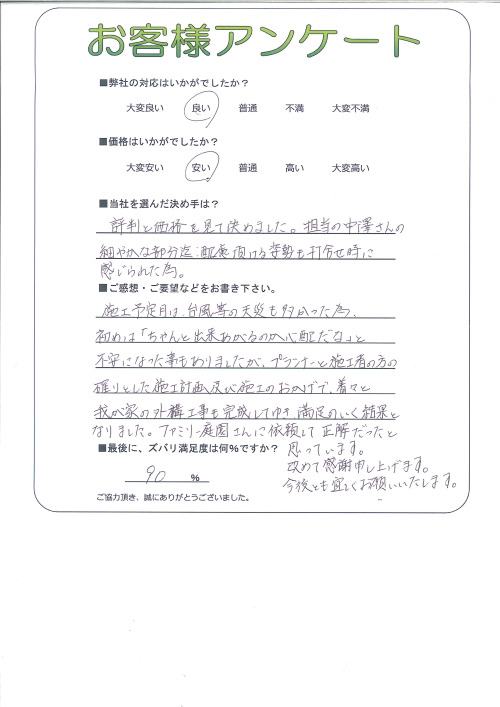 お客様アンケート
■弊社の対応はいかがでしたか？
大変良い 良い 普通 不満 大変不満
■価格はいかがでしたか？
大変安い 安い 普通 高い 大変高い
■当社を選んだ決め手は？
評判と価格を見て決めました。担当の中澤さんの
細やかな部分迄配慮頂ける姿勢も打合せ時に
感じられた為。
■ご感想・ご要望などをお書き下さい。
施工予定月は、台風等の天災も多かった為、
初めは「ちゃんと出来あがるのか心配だな」と
不安になった事もありましたが、プランナーと施工者の方の
確りとした施工計画及び施工のおかげで、着々と
我が家の外構工事も完成してゆき、満足のいく結果と
なりました。ファミリー庭園さんに依頼して正解だったと
思っています。
改めて感謝申し上げます。
今後とも宜しくお願いいたします。
■最後に、ズバリ満足度は何％ですか？
90 ％
ご協力頂き、誠にありがとうございました。